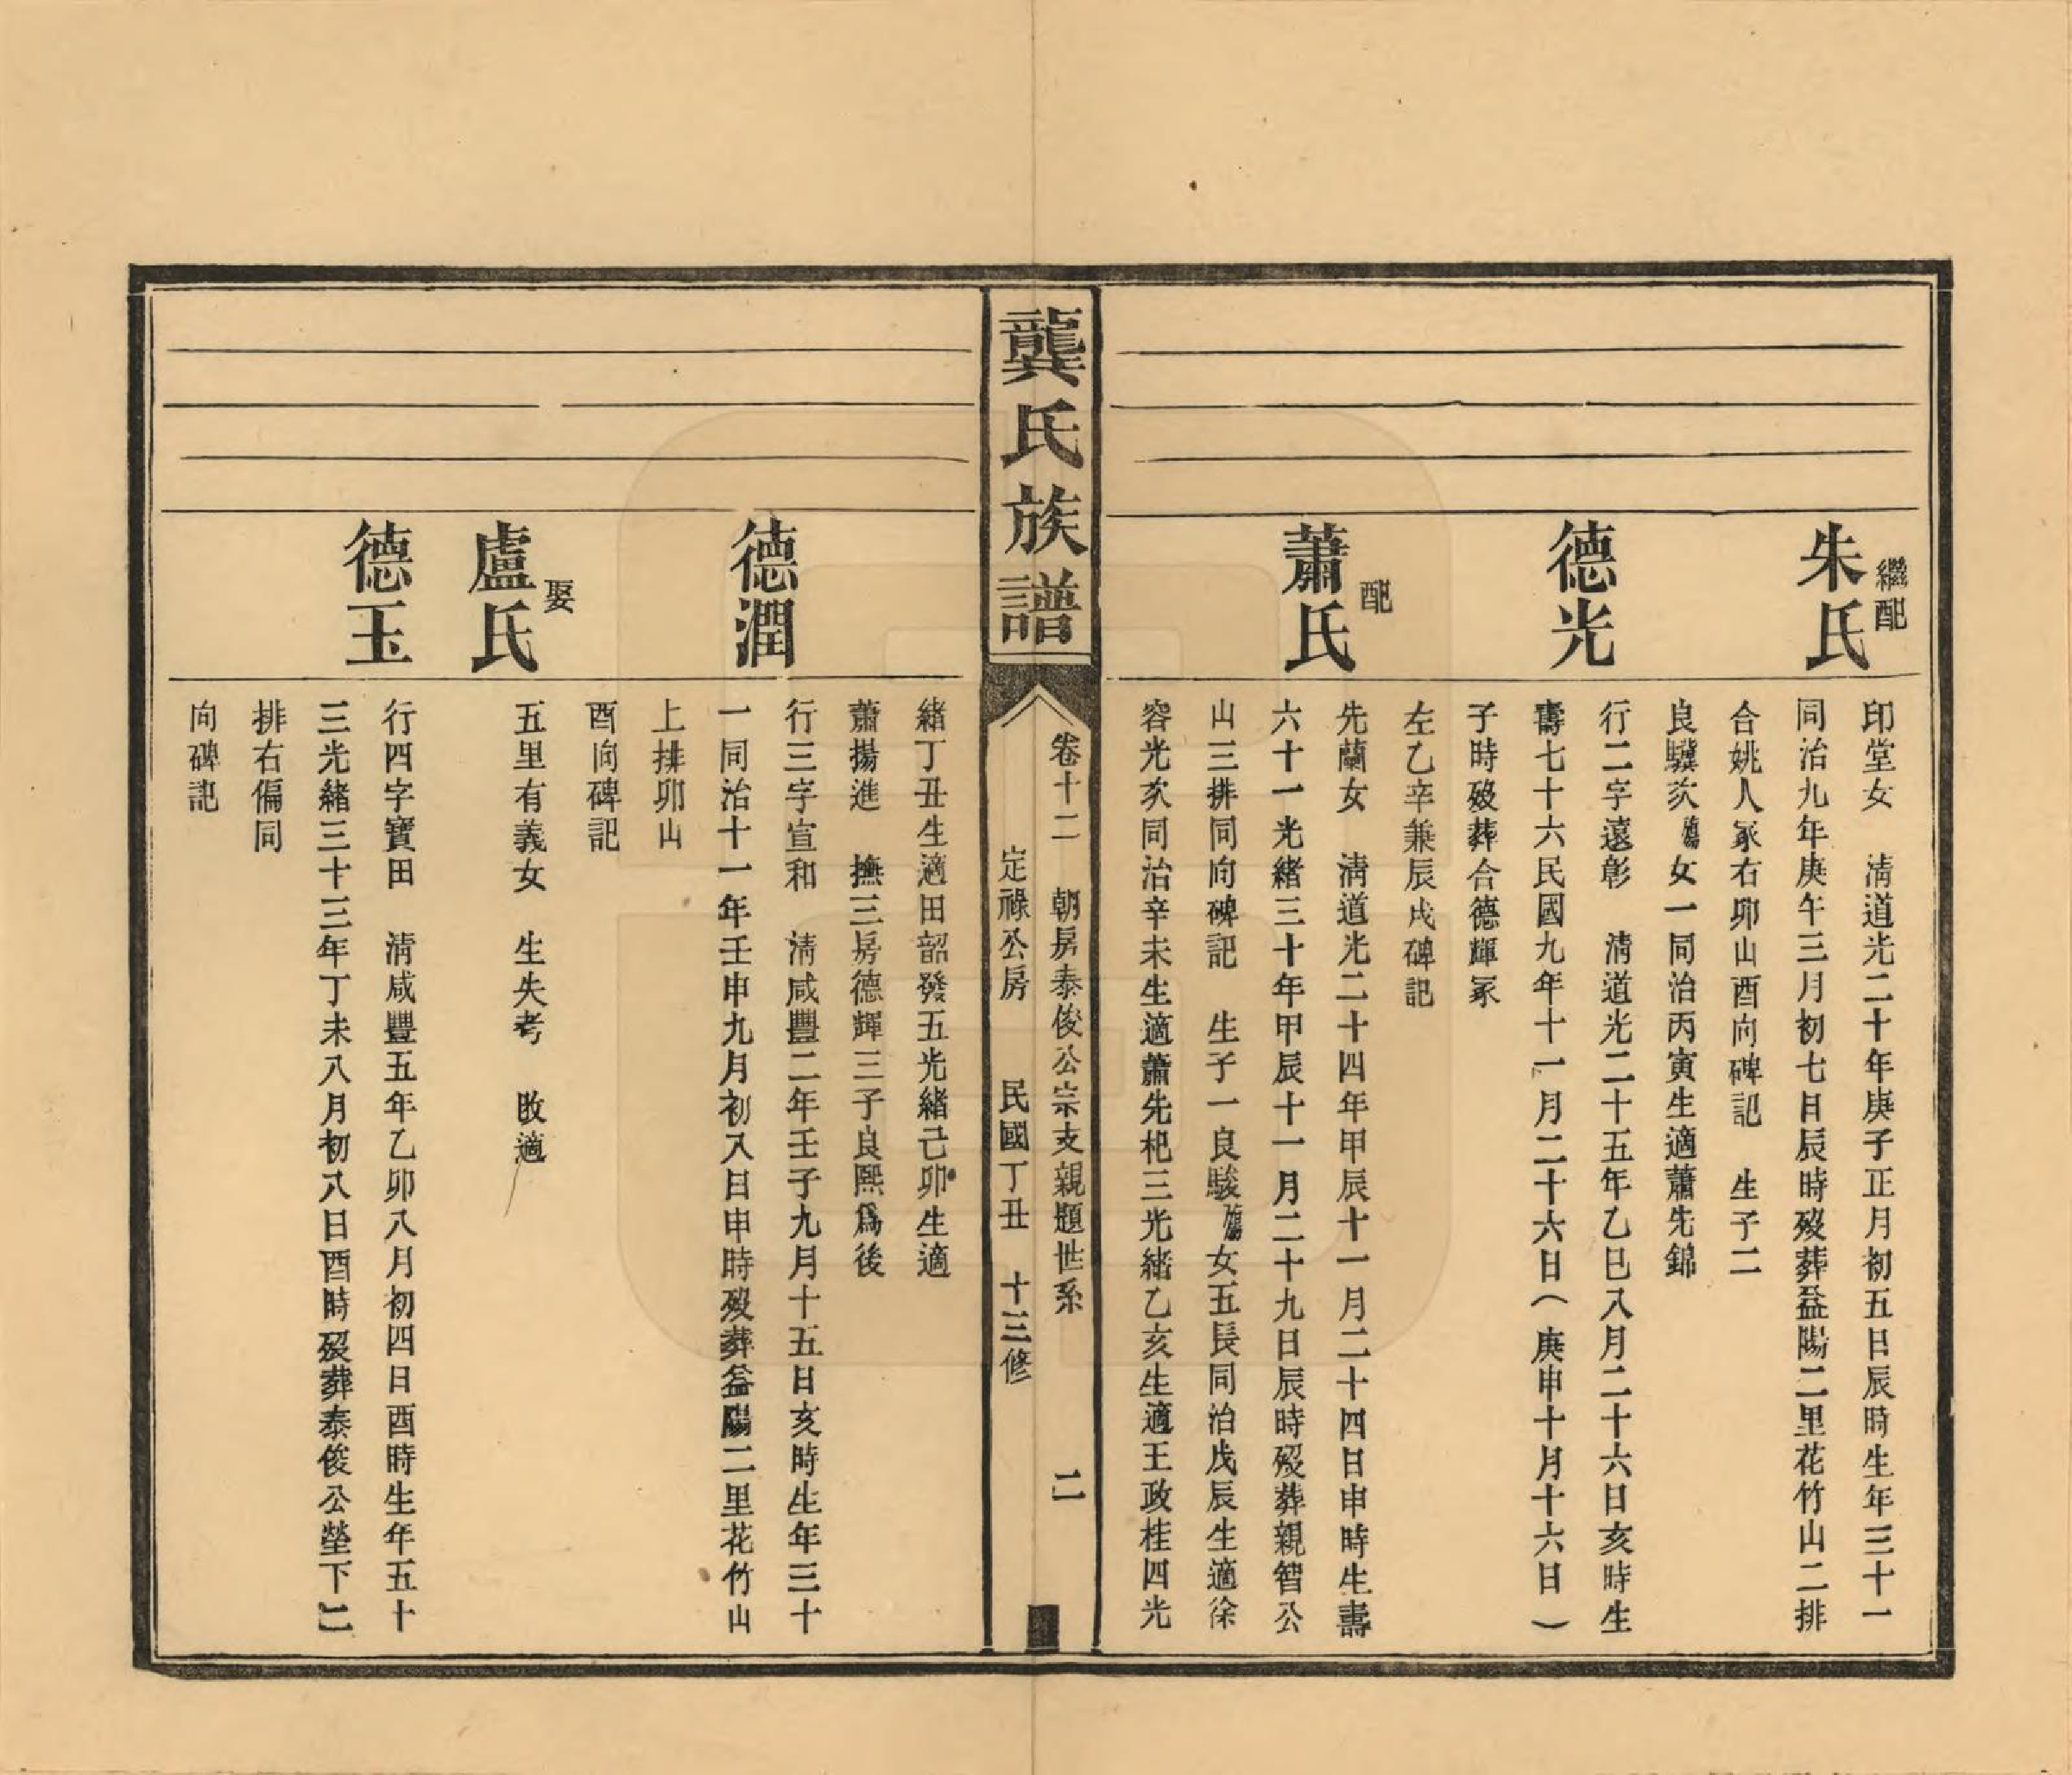 繼配
朱氏
印堂女　清道光二十年庚子正月初五日辰時生年三十一
同治九年庚午三月初七日辰時歿葬益陽二里花竹山二排
合姚人冢右卯山酉向碑記　生子二
良驥次殤女一同治丙寅生適蕭先錦
德光
行二字遠彰　清道光二十五年乙巳八月二十六日亥時生
壽七十六民國九年十一月二十六日（庚申十月十六日）
子時歿葬合德輝冢
左乙辛兼辰戌碑記
配
蕭氏
先蘭女　清道光二十四年甲辰十一月二十四日申時生壽
六十一光緒三十年甲辰十一月二十九日辰時歿葬親智公
山三排同向碑記　生子一良駿殤女五長同治戊辰生適徐
容光次同治辛未生適蕭先杞三光緒乙亥生適王政桂四光
龔氏族譜
卷十二　朝房泰俊公宗支親題世系　二
定祿公房　民國丁丑　十三修
緒丁丑生適田韶發五光緒己卯生適
蕭揚進　撫三房德輝三子良熙爲後
德潤
行三字宣和　清咸豐二年壬子九月十五日亥時生年三十
一同治十一年壬申九月初八日申時歿葬益陽二里花竹山
上排卯山
酉向碑記
娶
盧氏
五里有義女　生失考　改適
德玉
行四字寶田　清咸豐五年乙卯八月初四日酉時生年五十
三光緒三十三年丁未八月初八日酉時歿葬泰俊公塋下二
排右偏同
向碑記